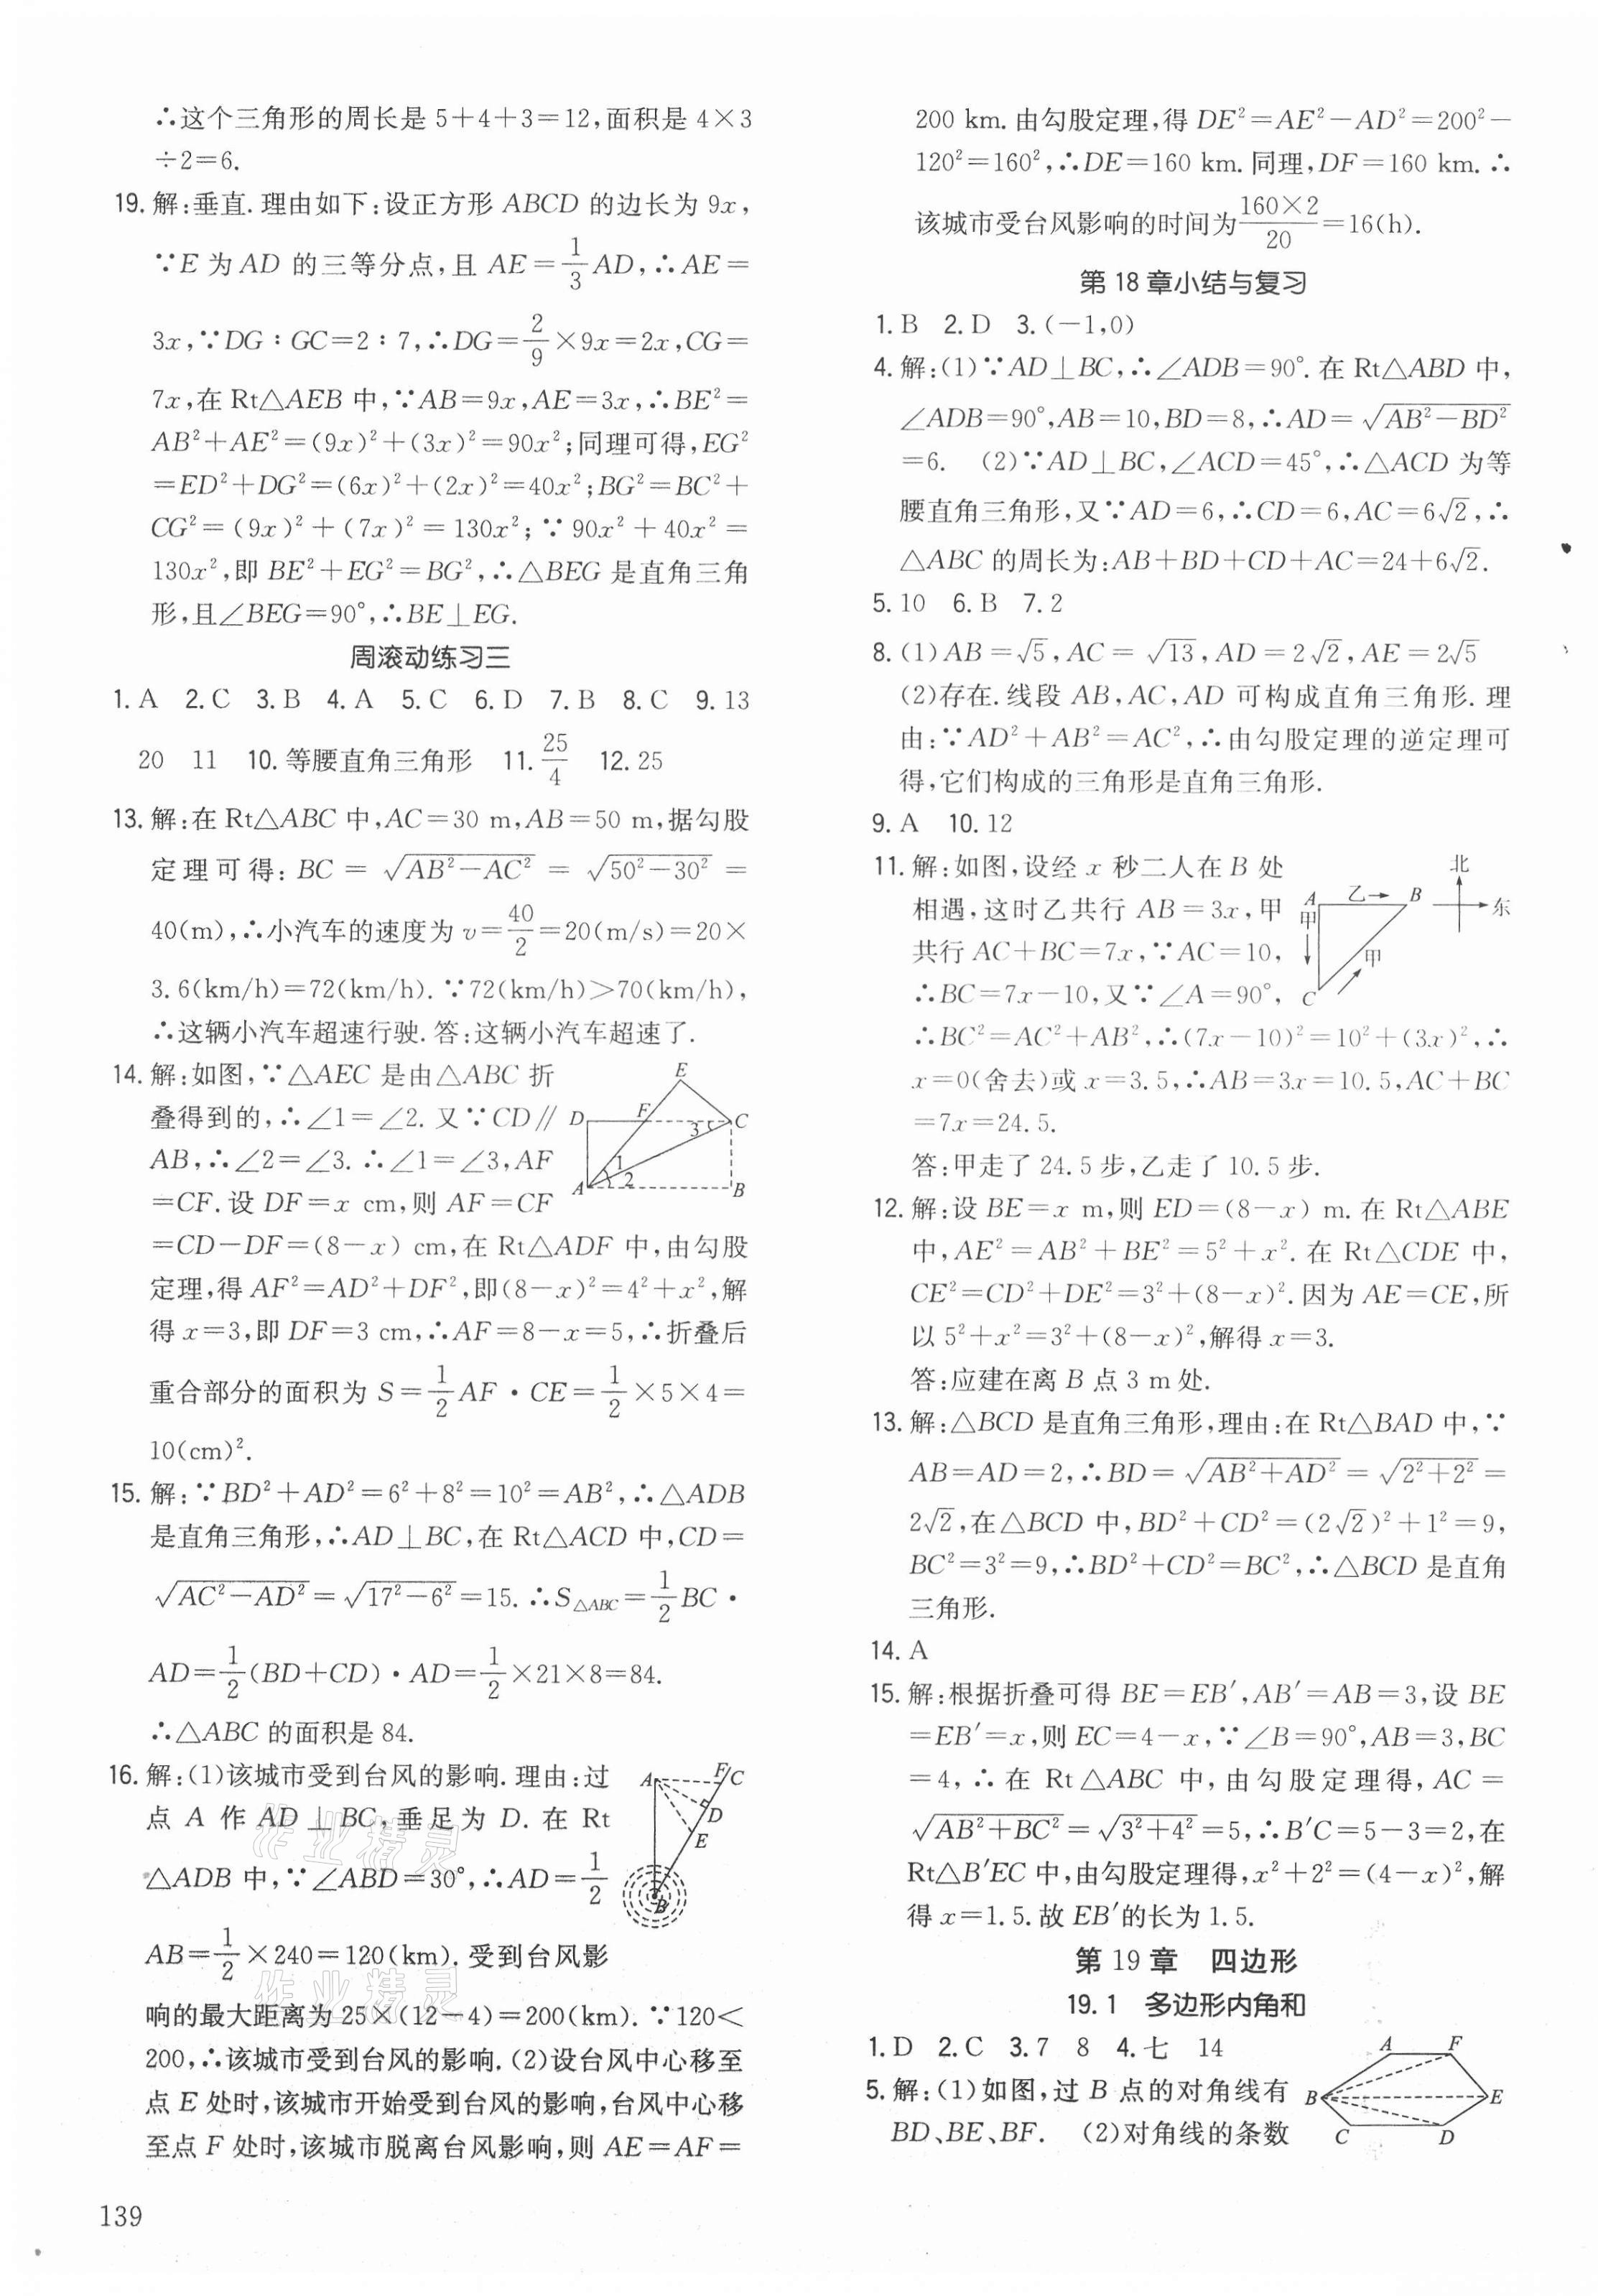 ∴这个三角形的周长是 5+4+3=12,面积是 4×3
÷2=6.
19. 解:垂直.理由如下:设正方形 ABCD 的边长为 9x,
∵E 为 AD 的三等分点,且 AE=1/3AD,∴AE=
3x,∵DG∶GC=2∶7,∴DG=2/9×9x=2x,CG=
7x,在 Rt△AEB 中,∵AB=9x,AE=3x,∴BE²=
AB²+AE²=(9x)²+(3x)²=90x²;同理可得,EG²
=ED²+DG²=(6x)²+(2x)²=40x²;BG²=BC²+
CG²=(9x)²+(7x)²=130x²;∵90x²+40x²=
130x²,即 BE²+EG²=BG²,∴△BEG 是直角三角
形,且∠BEG=90°,∴BE⊥EG.
周滚动练习三
1. A 2. C 3. B 4. A 5. C 6. D 7. B 8. C 9. 13
20 11 10. 等腰直角三角形 11. 25/4 12. 25
13. 解:在 Rt△ABC 中,AC=30 m,AB=50 m,据勾股
定理可得:BC=√(AB²−AC²)=√(50²−30²)=
40(m),∴小汽车的速度为 v=40/2=20(m/s)=20×
3.6(km/h)=72(km/h).∵72(km/h)>70(km/h),
∴这辆小汽车超速行驶.答:这辆小汽车超速了.
14. 解:如图,∵△AEC 是由△ABC 折
叠得到的,∴∠1=∠2. 又∵CD∥
AB,∴∠2=∠3.∴∠1=∠3,AF
=CF.设 DF=x cm,则 AF=CF
=CD−DF=(8−x) cm,在 Rt△ADF 中,由勾股
定理,得 AF²=AD²+DF²,即(8−x)²=4²+x²,解
得 x=3,即 DF=3 cm,∴AF=8−x=5,∴折叠后
重合部分的面积为 S=1/2AF·CE=1/2×5×4=
10(cm)².
E
D F 3 C
A 1 2 B
15. 解:∵BD²+AD²=6²+8²=10²=AB²,∴△ADB
是直角三角形,∴AD⊥BC,在 Rt△ACD 中,CD=
√(AC²−AD²)=√(17²−6²)=15.∴S△ABC=1/2BC·
AD=1/2(BD+CD)·AD=1/2×21×8=84.
∴△ABC 的面积是 84.
16. 解:(1)该城市受到台风的影响.理由:过
点 A 作 AD⊥BC,垂足为 D. 在 Rt
△ADB 中,∵∠ABD=30°,∴AD=1/2
AB=1/2×240=120(km).受到台风影
响的最大距离为 25×(12−4)=200(km).∵120<
200,∴该城市受到台风的影响.(2)设台风中心移至
点 E 处时,该城市开始受到台风的影响,台风中心移
至点 F 处时,该城市脱离台风影响,则 AE=AF=
A F C
D
E
B
作业精灵
作业精灵
139
200 km.由勾股定理,得 DE²=AE²−AD²=200²−
120²=160²,∴DE=160 km.同理,DF=160 km.∴
该城市受台风影响的时间为160×2/20=16(h).
第 18 章小结与复习
1. B 2. D 3. (−1,0)
4. 解:(1)∵AD⊥BC,∴∠ADB=90°.在 Rt△ABD 中,
∠ADB=90°,AB=10,BD=8,∴AD=√(AB²−BD²)
=6. (2)∵AD⊥BC,∠ACD=45°,∴△ACD 为等
腰直角三角形,又∵AD=6,∴CD=6,AC=6√2,∴
△ABC 的周长为:AB+BD+CD+AC=24+6√2.
5. 10 6. B 7. 2
8. (1)AB=√5,AC=√13,AD=2√2,AE=2√5
(2)存在.线段 AB,AC,AD 可构成直角三角形.理
由:∵AD²+AB²=AC²,∴由勾股定理的逆定理可
得,它们构成的三角形是直角三角形.
9. A 10. 12
11. 解:如图,设经 x 秒二人在 B 处
相遇,这时乙共行 AB=3x,甲
共行 AC+BC=7x,∵AC=10,
∴BC=7x−10,又∵∠A=90°,
∴BC²=AC²+AB²,∴(7x−10)²=10²+(3x)²,∴
x=0(舍去)或 x=3.5,∴AB=3x=10.5,AC+BC
=7x=24.5.
答:甲走了 24.5 步,乙走了 10.5 步.
北
A 乙 B 东
甲
甲
C
12. 解:设 BE=x m,则 ED=(8−x) m.在 Rt△ABE
中,AE²=AB²+BE²=5²+x².在 Rt△CDE 中,
CE²=CD²+DE²=3²+(8−x)².因为 AE=CE,所
以 5²+x²=3²+(8−x)²,解得 x=3.
答:应建在离 B 点 3 m 处.
13. 解:△BCD 是直角三角形,理由:在 Rt△BAD 中,∵
AB=AD=2,∴BD=√(AB²+AD²)=√(2²+2²)=
2√2,在△BCD 中,BD²+CD²=(2√2)²+1²=9,
BC²=3²=9,∴BD²+CD²=BC²,∴△BCD 是直角
三角形.
14. A
15. 解:根据折叠可得 BE=EB′,AB′=AB=3,设 BE
=EB′=x,则 EC=4−x,∵∠B=90°,AB=3,BC
=4,∴在 Rt△ABC 中,由勾股定理得,AC=
√(AB²+BC²)=√(3²+4²)=5,∴B′C=5−3=2,在
Rt△B′EC 中,由勾股定理得,x²+2²=(4−x)²,解
得 x=1.5.故 EB′的长为 1.5.
第 19 章 四边形
19.1 多边形内角和
1. D 2. C 3. 7 8 4. 七 14
5. 解:(1)如图,过 B 点的对角线有
BD、BE、BF. (2)对角线的条数
A F
B E
C D